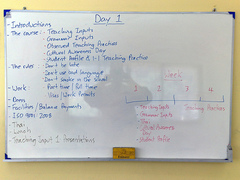 Day 1
- Introductions
- The course: - Teaching Inputs
- Grammar Inputs
- Observed Teaching Practice
- Cultural Awareness Day
- Student Profile & 1-1 Teaching Practice
- The rules - Don't be late
- Don't use bad language
- Don't smoke in the school
- Work: - Part time / Full time
- Visas / Work Permits
- Facilities / Balance Payments
- ISO 9001:2008
- Lunch
- Teaching Input 1 Presentations
1 2 3 4
Teaching Inputs
Grammar Inputs
Student Profile
Teaching Practice